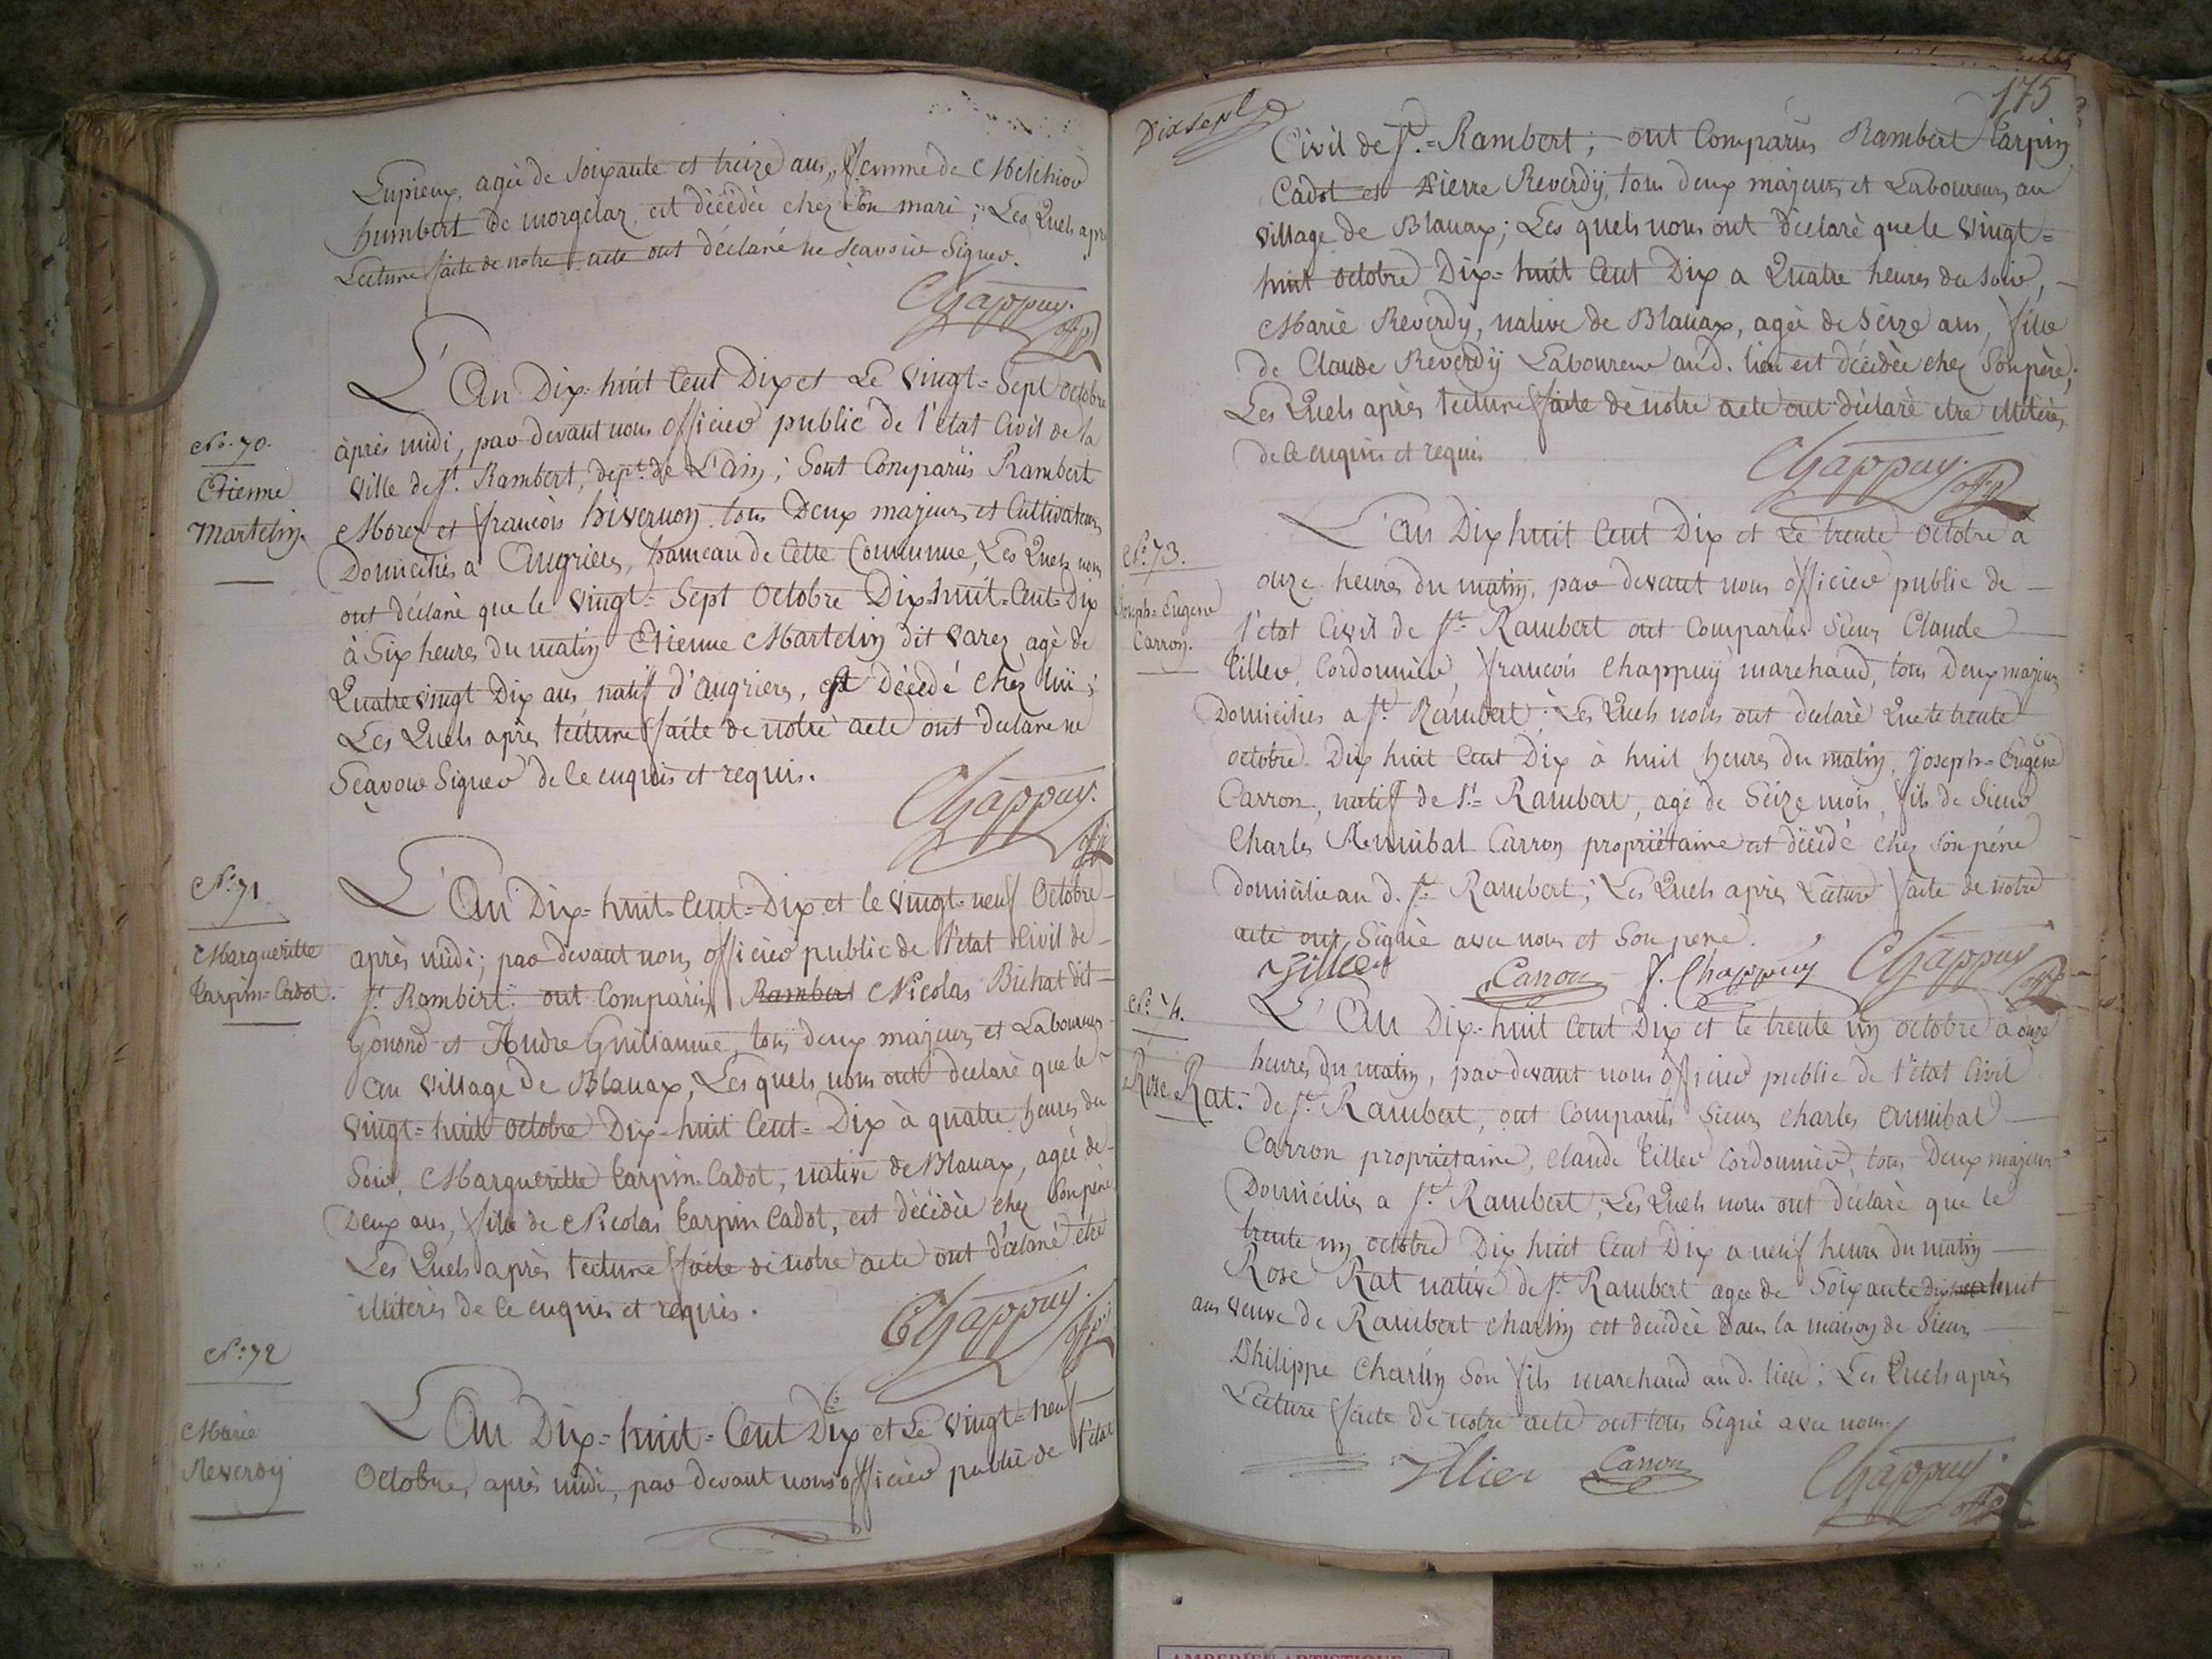 Lupieux, agée de soixante et treize ans, femme de Melchior
humbert de morgelaz, est décédée chez son mari; Les Quels après
Lecture faite de notre acte ont déclaré ne sçavoir signer.
Chappuy.
L'An Dix-huit Cent Dix et Le vingt=Sept octobre
après midi, par devant nous officier public de l'état Civil de la
ville de St. Rambert, dept. de L'ain; Sont Comparüs Rambert
N°. 70.
Etienne
Martelin.
Morez et françois hivernon tous Deux majeurs et Cultivateurs
Domiciliés a Angrieres, hameau de Cette Commune, Les Quels nous
ont déclaré que le vingt=Sept Octobre Dix-huit=Cent=Dix
à Six heures du matin Etienne Martelin dit varez agé de
Quatre vingt Dix ans, natif d'angrieres, est Décédé Chez lui;
Les Quels après lecture faite de notre acte ont declaré ne
Sçavoir Signer de le enquis et requis.
Chappuy.
N°. 71
Margueritte
Carpin=Cadot.
L'An Dix=huit-Cent=Dix et le vingt=neuf Octobre
après midi; par devant nous officier public de l'état Civil de
St. Rambert: ont Comparüs Rambert Nicolas Bichat dit
Gonond et Andre Guillaume, tous deux majeurs et Laboureurs
au village de Blanaz, Les quels nous ont declaré que le
vingt=huit octobre Dix-huit Cent=Dix à quatre heures du
Soir, Margueritte Carpin-Cadot, native de Blanaz, agée de
Deux ans, fille de Nicolas Carpin Cadot, est décédée chez son père
Les Quels après lecture faite de notre acte ont déclaré etre
illiterés de le enquis et requis.
Chappuy.
N°. 72
Marie
Reverdÿ
L'An Dix=huit=Cent Dix et Le vingt=neuf
Octobre, après midi, par devant nous officier public de l'état
175
Dixsept
Civil de St.=Rambert; ont Comparüs Rambert Carpin
Cadot et Pierre Reverdÿ, tous deux majeurs et Laboureurs au
village de Blanaz; Les quels nous ont déclaré que le vingt=
huit octobre Dix=huit Cent Dix a Quatre heures du Soir,
Marie Reverdy, native de Blanaz, agée de Seize ans, fille
de Claude Reverdÿ Laboureur au d. lieu est décédée chez Son père;
Les Quels après lecture faite de notre acte ont déclaré etre illiterés
de le enquis et requis
Chappuy.
N°. 73.
Joseph=Eugene
Carron.
L'An Dix huit Cent Dix et Le trente octobre à
onze heures du matin, par devant nous officier public de
l'état Civil de St. Rambert ont Comparüs Sieurs Claude
Tiller, Cordonnier, françois Chappuÿ marchand, tous Deux majeurs
Domiciliés a St. Rambert: Les Quels nous ont declaré Que le trente
octobre Dix huit Cent Dix à huit heures du matin, Joseph=Eugène
Carron, natif de St.= Rambert, agé de Seize mois, fils de Sieur
Charles Annibal Carron propriétaire est décédé chez son père
domicilié au d. St. Rambert; Les Quels après Lecture faite de notre
acte ont Signé avec nous et Son pere.
Carron f. Chappuÿ Chappuy
N°. 74.
Rose Rat.
L'An Dix=huit Cent Dix et le trente un octobre a onze
heures du matin, par devant nous officier public de l'état Civil
de St. Rambert, ont Comparüs Sieurs Charles annibal
Carron propriétaire, Claude Tiller Cordonnier, tous Deux majeurs
Domiciliés a St. Rambert, Les Quels nous ont déclaré que le
trente un octobre Dix huit Cent Dix a neuf heures du matin
Rose Rat native de St. Rambert agée de Soixante Dix huit
ans veuve de Rambert charlin est décédée dans la maison de Sieur
Philippe Charlin Son fils marchand au d. lieu: Les Quels après
Lecture faite de notre acte ont tous Signé avec nous.
Carron Chappuy
AMBERIEU ARTISTIQUE